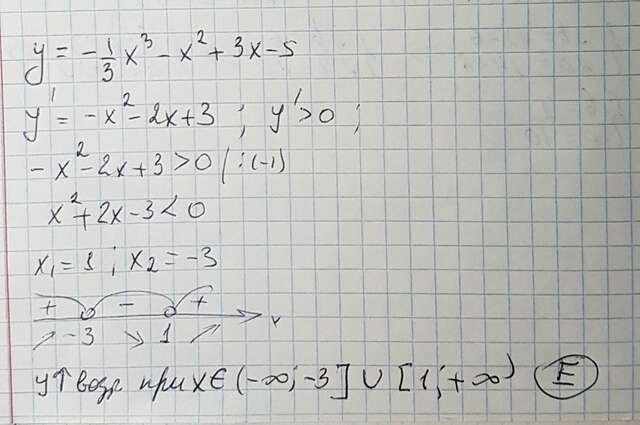 y = -1/3 x³ - x² + 3x - 5
y' = -x² - 2x + 3 ; y' > 0 ;
-x² - 2x + 3 > 0 / : (-1)
x² + 2x - 3 < 0
x₁ = 1 ; x₂ = -3
+ - + 
↗ -3 ↘ 1 ↗ x
y↑ возр при x ∈ (-∞; -3] ∪ [1; +∞) E